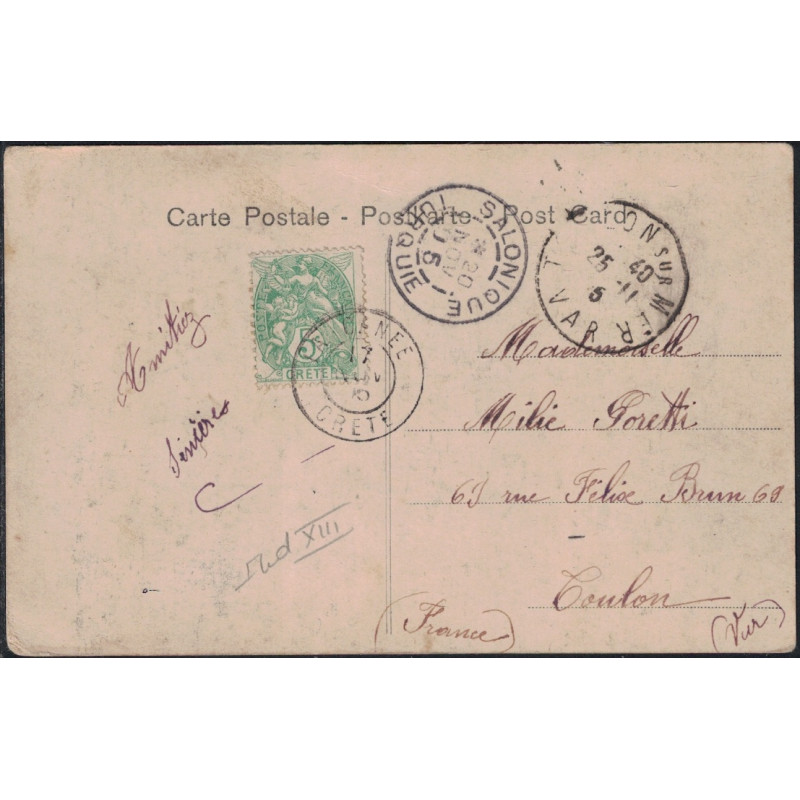 Carte Postale - Postkarte - Post Card
SALONIQUE
TURQUIE
20 NOV 05
TOULON SUR MER
25 - 11
5
40
VAR
5
CRETE
CRETE
Amitiés
Sincères
Mademoiselle
Milie Foretti
69 rue Félix Brun 69
Toulon
(France)
(Var)
XIII